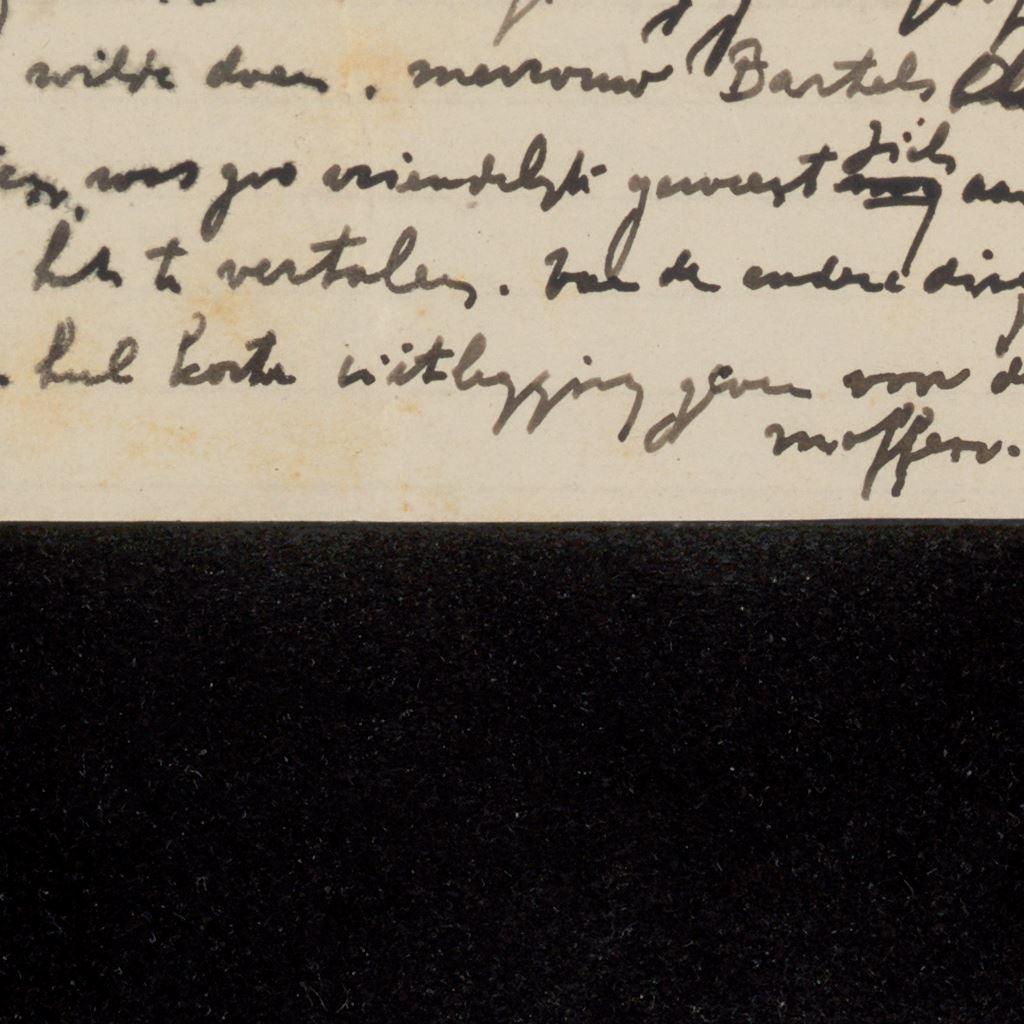 wilde doen. mevrouw Bartels
was zoo vriendelijk geweest zich aan
het te vertalen. Van de andere ding
heel korte uitlegging geven voor d
moffen.